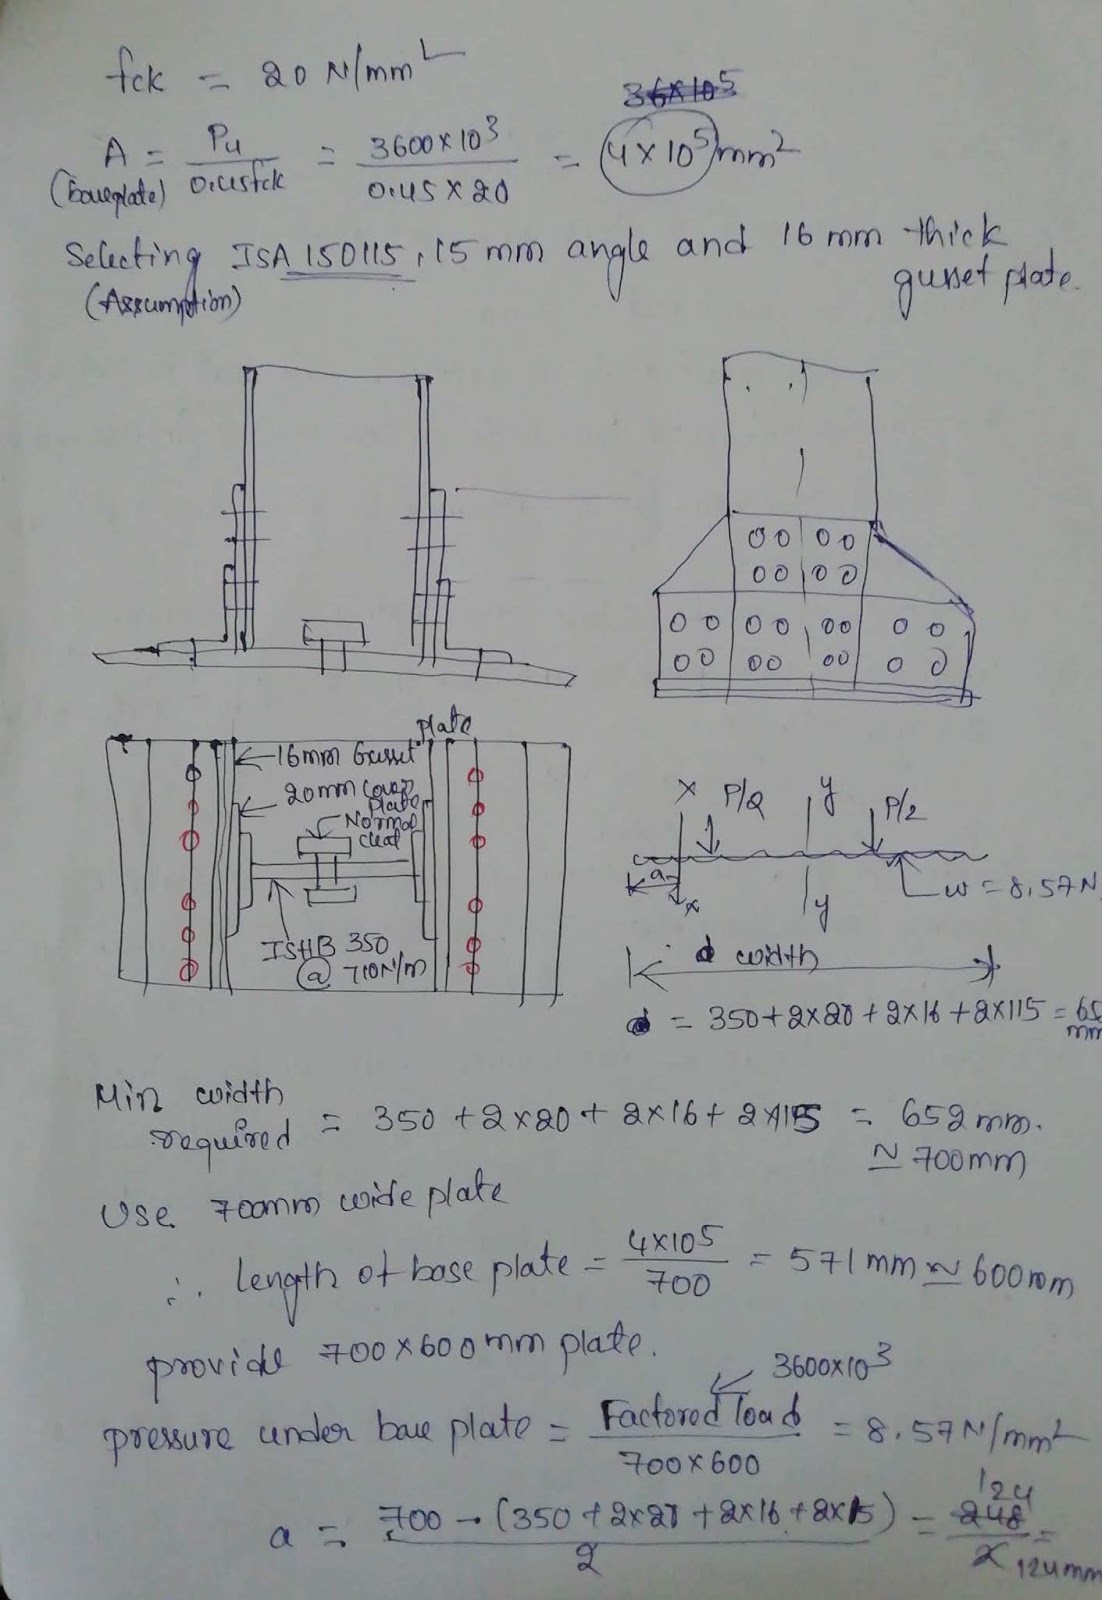 fck = 20 N/mm²
36×10⁵
A = Pu / 0.45fck = 3600×10³ / 0.45×20 = 4×10⁵ mm²
(baseplate)
Selecting ISA 150115, 15mm angle and 16mm thick
(Assumption) gusset plate.
plate
16mm Gusset
20mm cover
plate
Normal
cleat
ISHB 350
@ 710N/m
x P/2 y P/2
a
x y w = 8.57N
d width
d = 350+2×20+2×16+2×115 = 65
mm
Min width
required = 350+2×20+2×16+2×115 = 652mm.
≃ 700mm
Use 700mm wide plate
∴ length of base plate = 4×10⁵ / 700 = 571mm ≃ 600mm
provide 700×600mm plate.
3600×10³
pressure under base plate = Factored load / 700×600 = 8.57N/mm²
a = 700-(350+2×20+2×16+2×15) / 2 = 248 / 2 = 124mm
124